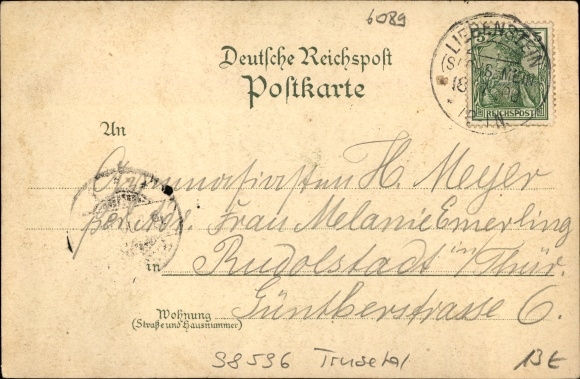 6089
LIEBENSTEIN
5
REICHSPOST
Deutsche Reichspost
Postkarte
An
Gymnasiasten H. Meyer
per Adr. Frau Melanie Emerling
in Rudolstadt in Thür.
Wohnung Güntherstrasse 6.
(Straße und Hausnummer)
98596 Trusetal 13E